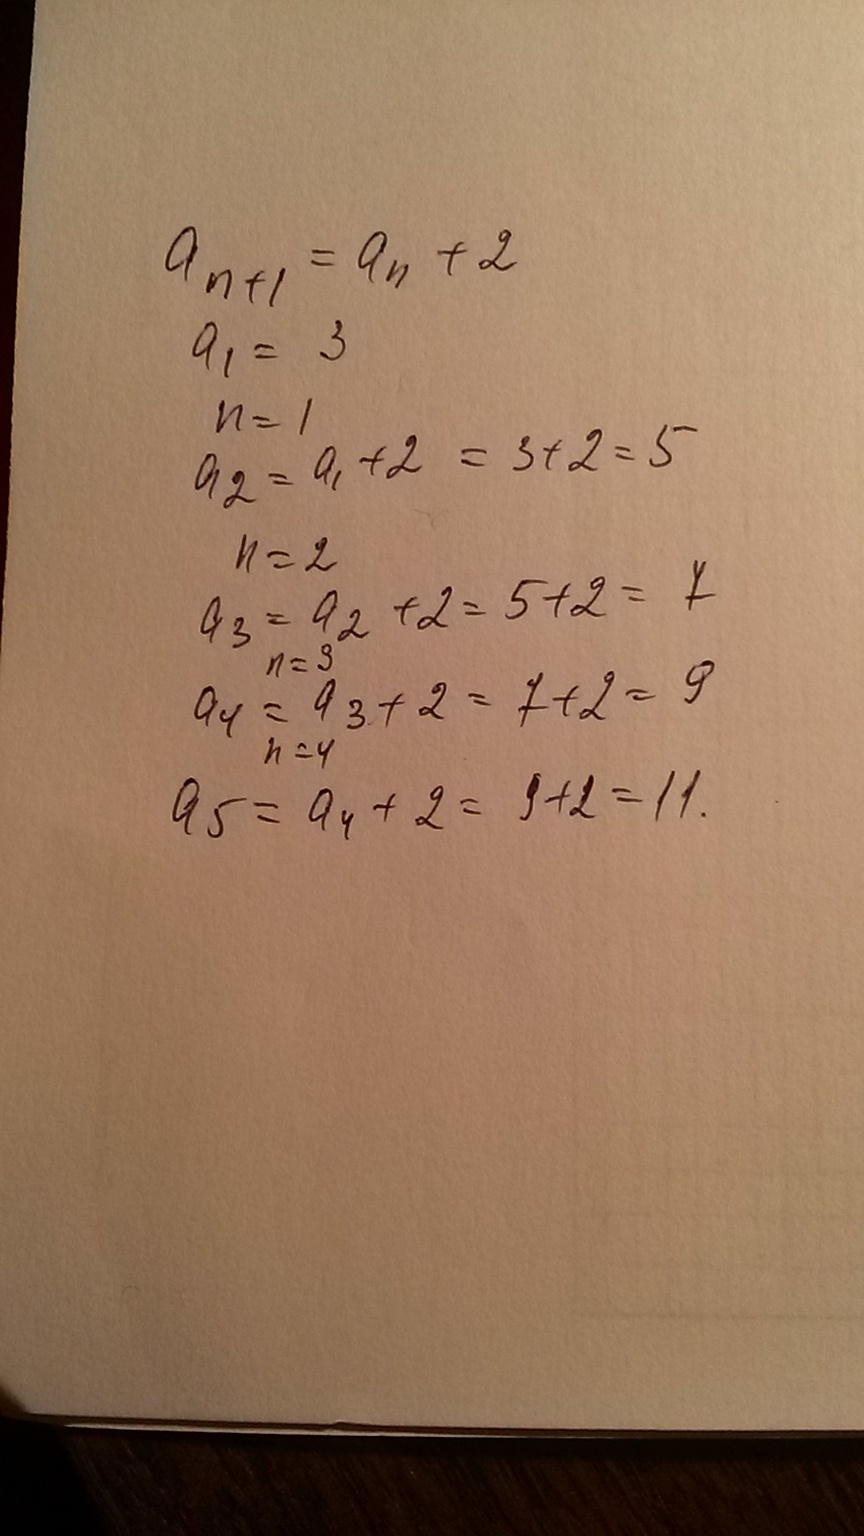 a_{n+1} = a_n + 2
a_1 = 3
n = 1
a_2 = a_1 + 2 = 3+2 = 5
n = 2
a_3 = a_2 + 2 = 5+2 = 7
n = 3
a_4 = a_3 + 2 = 7+2 = 9
n = 4
a_5 = a_4 + 2 = 9+2 = 11.